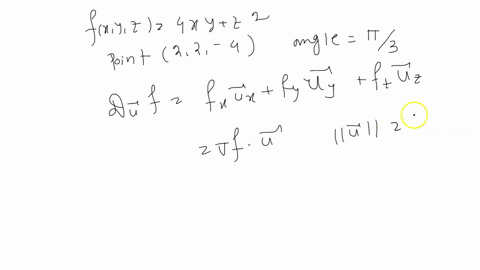 f(x,y,z) = 4xy+z²
point (2,2,-4) angle = π/3
D_u⃗ f = f_x u⃗_x + f_y u⃗_y + f_z u⃗_z
= ∇f · u⃗ ||u⃗|| =